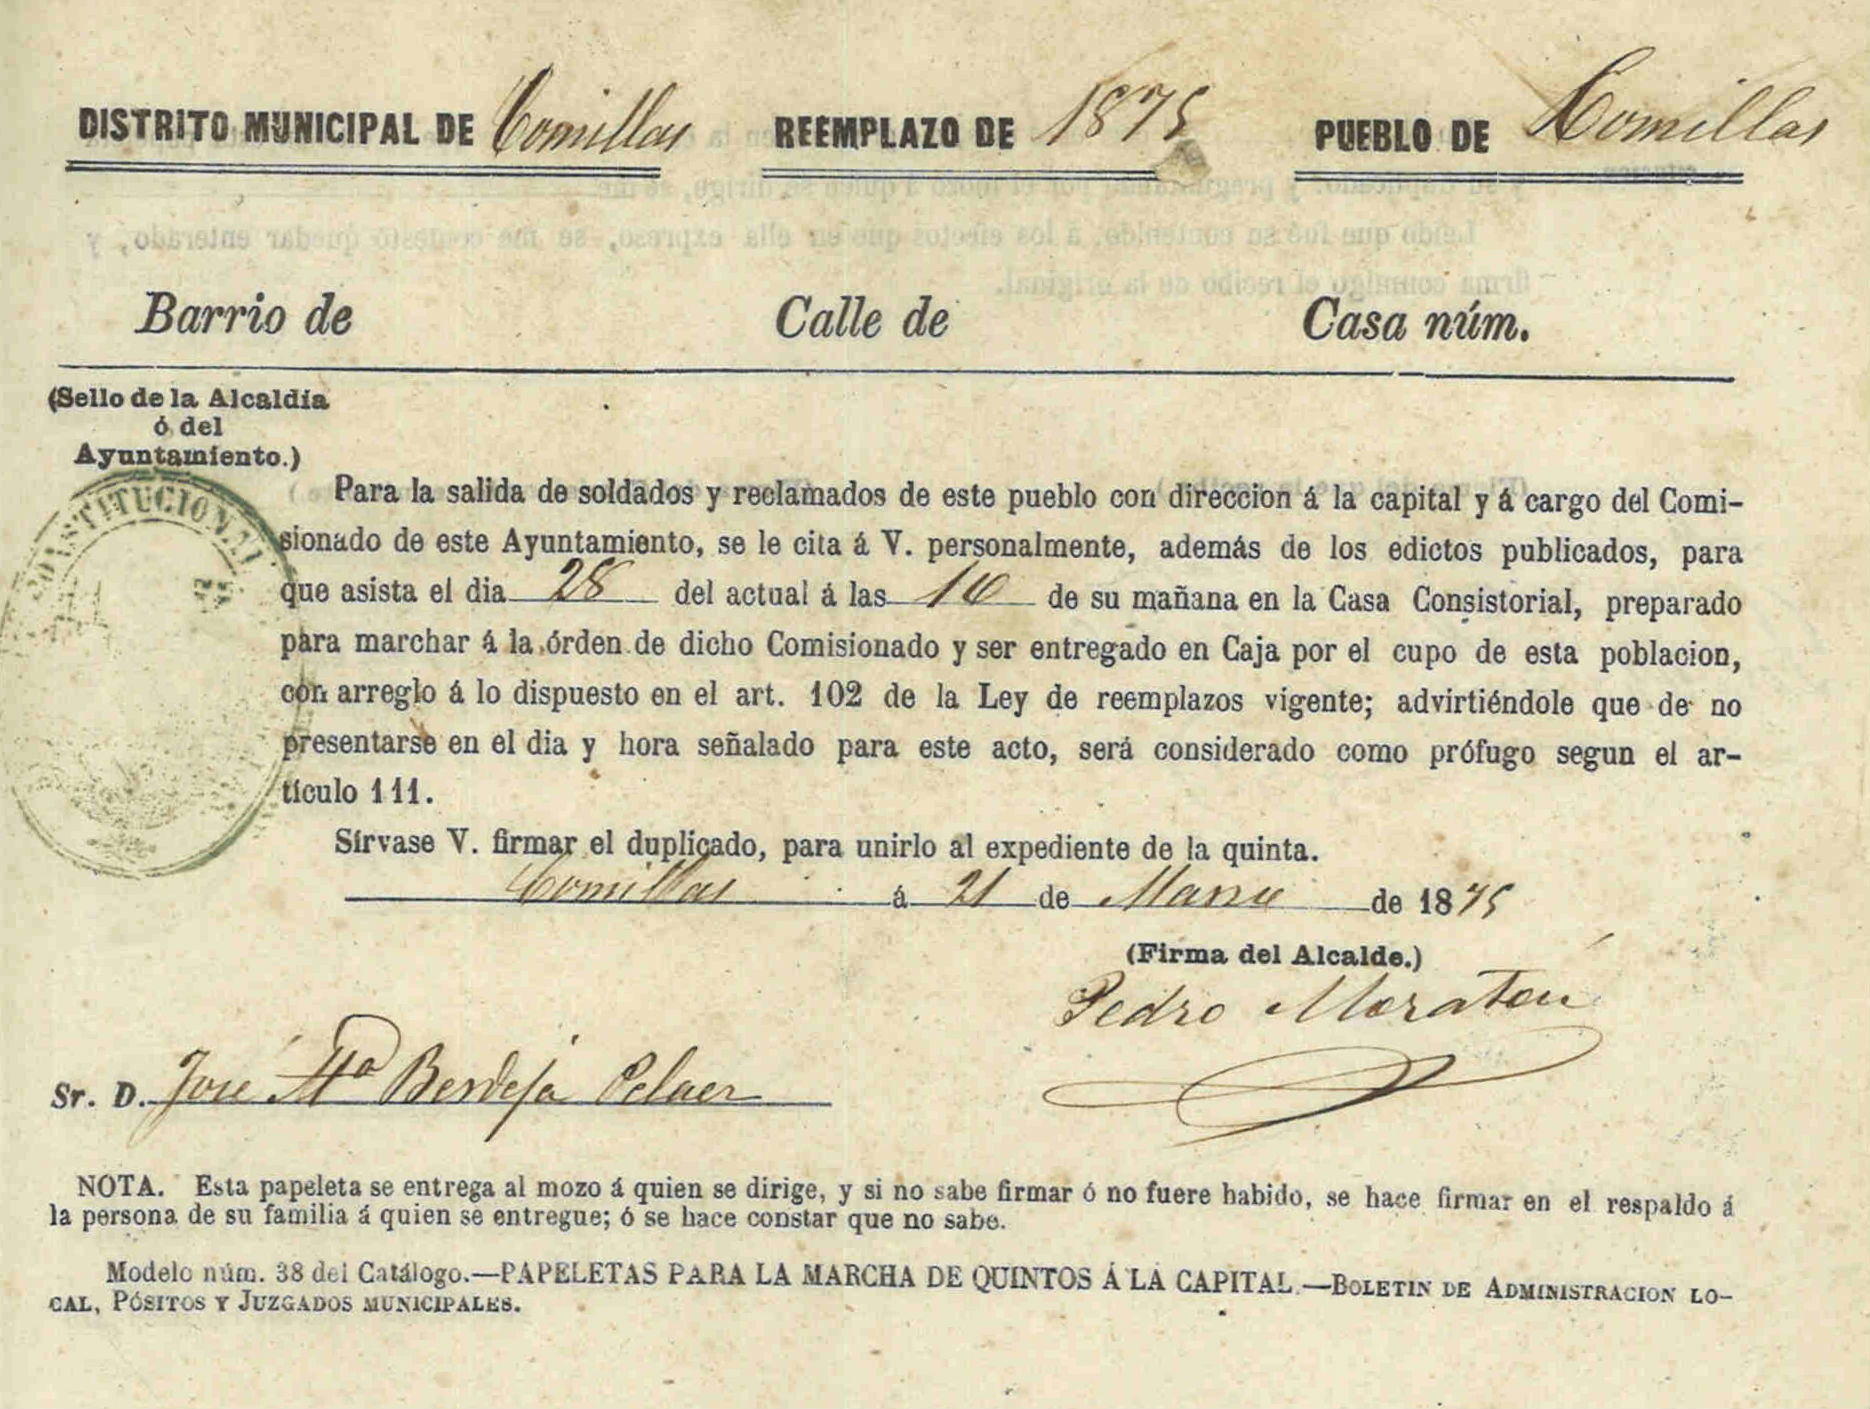 DISTRITO MUNICIPAL DE Comillas REEMPLAZO DE 1875 PUEBLO DE Comillas
Barrio de Calle de Casa núm.
(Sello de la Alcaldía
ó del
Ayuntamiento.)
CONSTITUCIONAL
Para la salida de soldados y reclamados de este pueblo con direccion á la capital y á cargo del Comi-
sionado de este Ayuntamiento, se le cita á V. personalmente, además de los edictos publicados, para
que asista el dia 28 del actual á las 10 de su mañana en la Casa Consistorial, preparado
para marchar á la órden de dicho Comisionado y ser entregado en Caja por el cupo de esta poblacion,
con arreglo á lo dispuesto en el art. 102 de la Ley de reemplazos vigente; advirtiéndole que de no
presentarse en el dia y hora señalado para este acto, será considerado como prófugo segun el ar-
tículo 111.
Sírvase V. firmar el duplicado, para unirlo al expediente de la quinta.
Comillas á 21 de Marzo de 1875
(Firma del Alcalde.)
Pedro Moratan
Sr. D. José Mª Berdeja Pelaez
NOTA. Esta papeleta se entrega al mozo á quien se dirige, y si no sabe firmar ó no fuere habido, se hace firmar en el respaldo á
la persona de su familia á quien se entregue; ó se hace constar que no sabe.
Modelo núm. 38 del Catálogo.—PAPELETAS PARA LA MARCHA DE QUINTOS Á LA CAPITAL.—BOLETIN DE ADMINISTRACION LO-
CAL, PÓSITOS Y JUZGADOS MUNICIPALES.